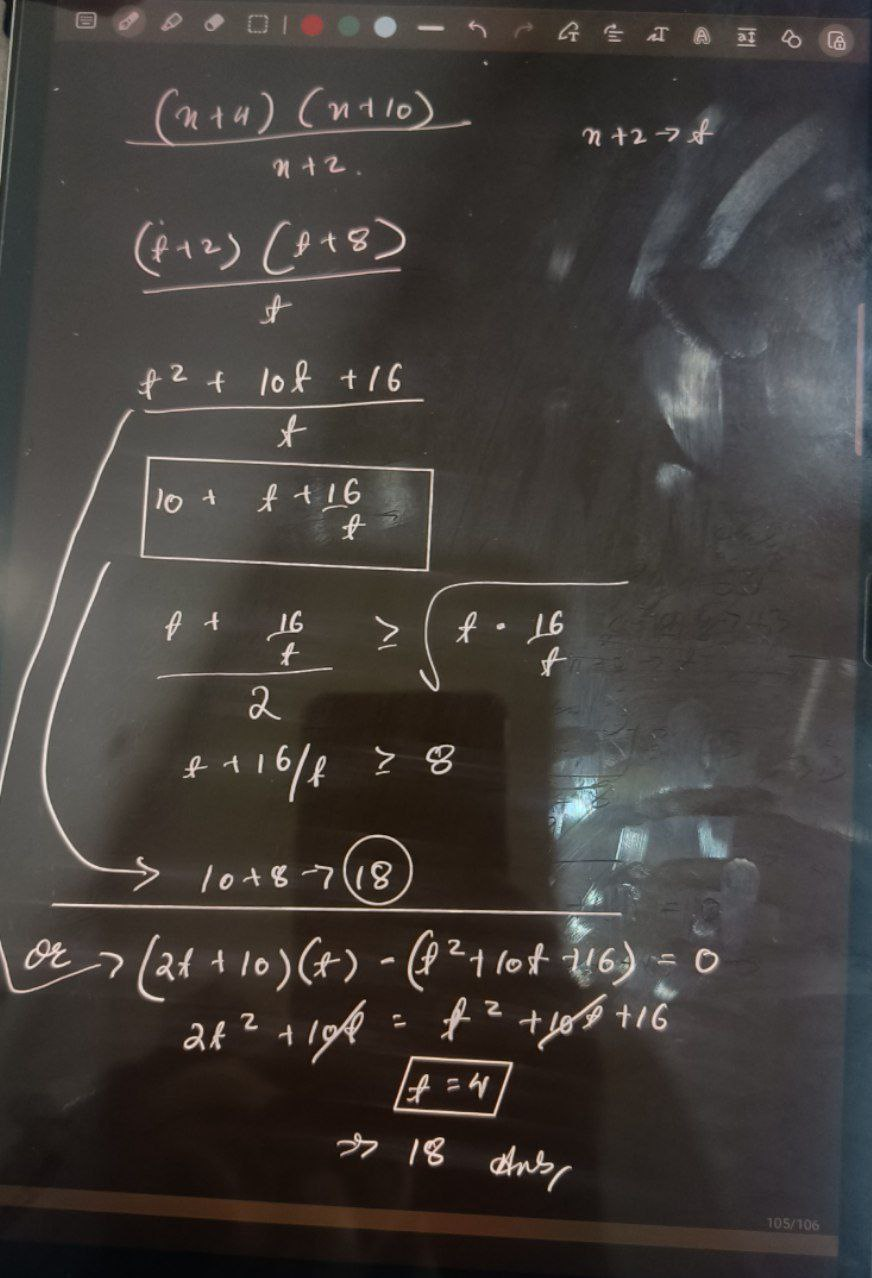 (x+4) (x+10)
x+2.
x+2 → t
(t+2) (t+8)
t
t² + 10t + 16
t
10 + t + 16
t
t + 16/t ≥ √ t · 16/t
2
t + 16/t ≥ 8
→ 10+8 → 18
or → (2t + 10)(t) - (t² + 10t + 16) = 0
2t² + 10t = t² + 10t + 16
t = 4
⇒ 18 Ans
105/106